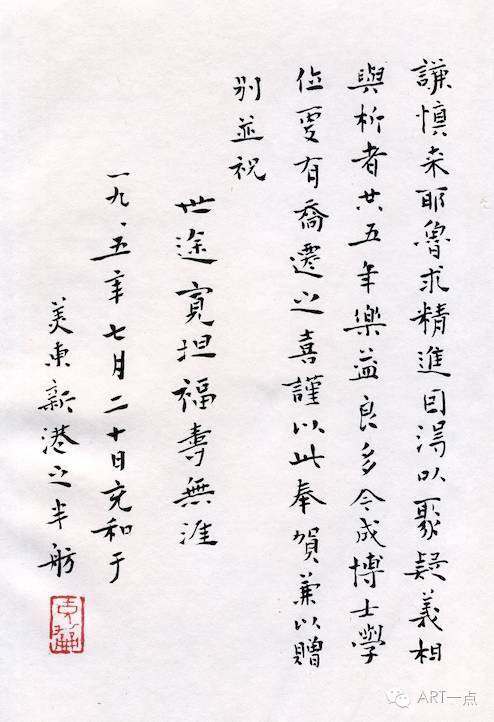 謙慎来耶魯求精進因得以聚疑義相
與析者共五年樂益良多今成博士學
位更有喬遷之喜謹以此奉賀兼以贈
別並祝
世途寬坦福壽無涯
一九、五年七月二十日充和于
美東新港之半舫
充龢
ART一点